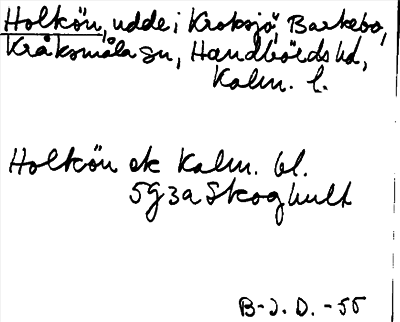 Holkön, udde i Kroksjö Barkebo,
Kråksmåla sn, Handbörds hd,
Kalm. l.
Holkön ek Kalm. bl.
5g3a Skoghult
B-J. D. -55